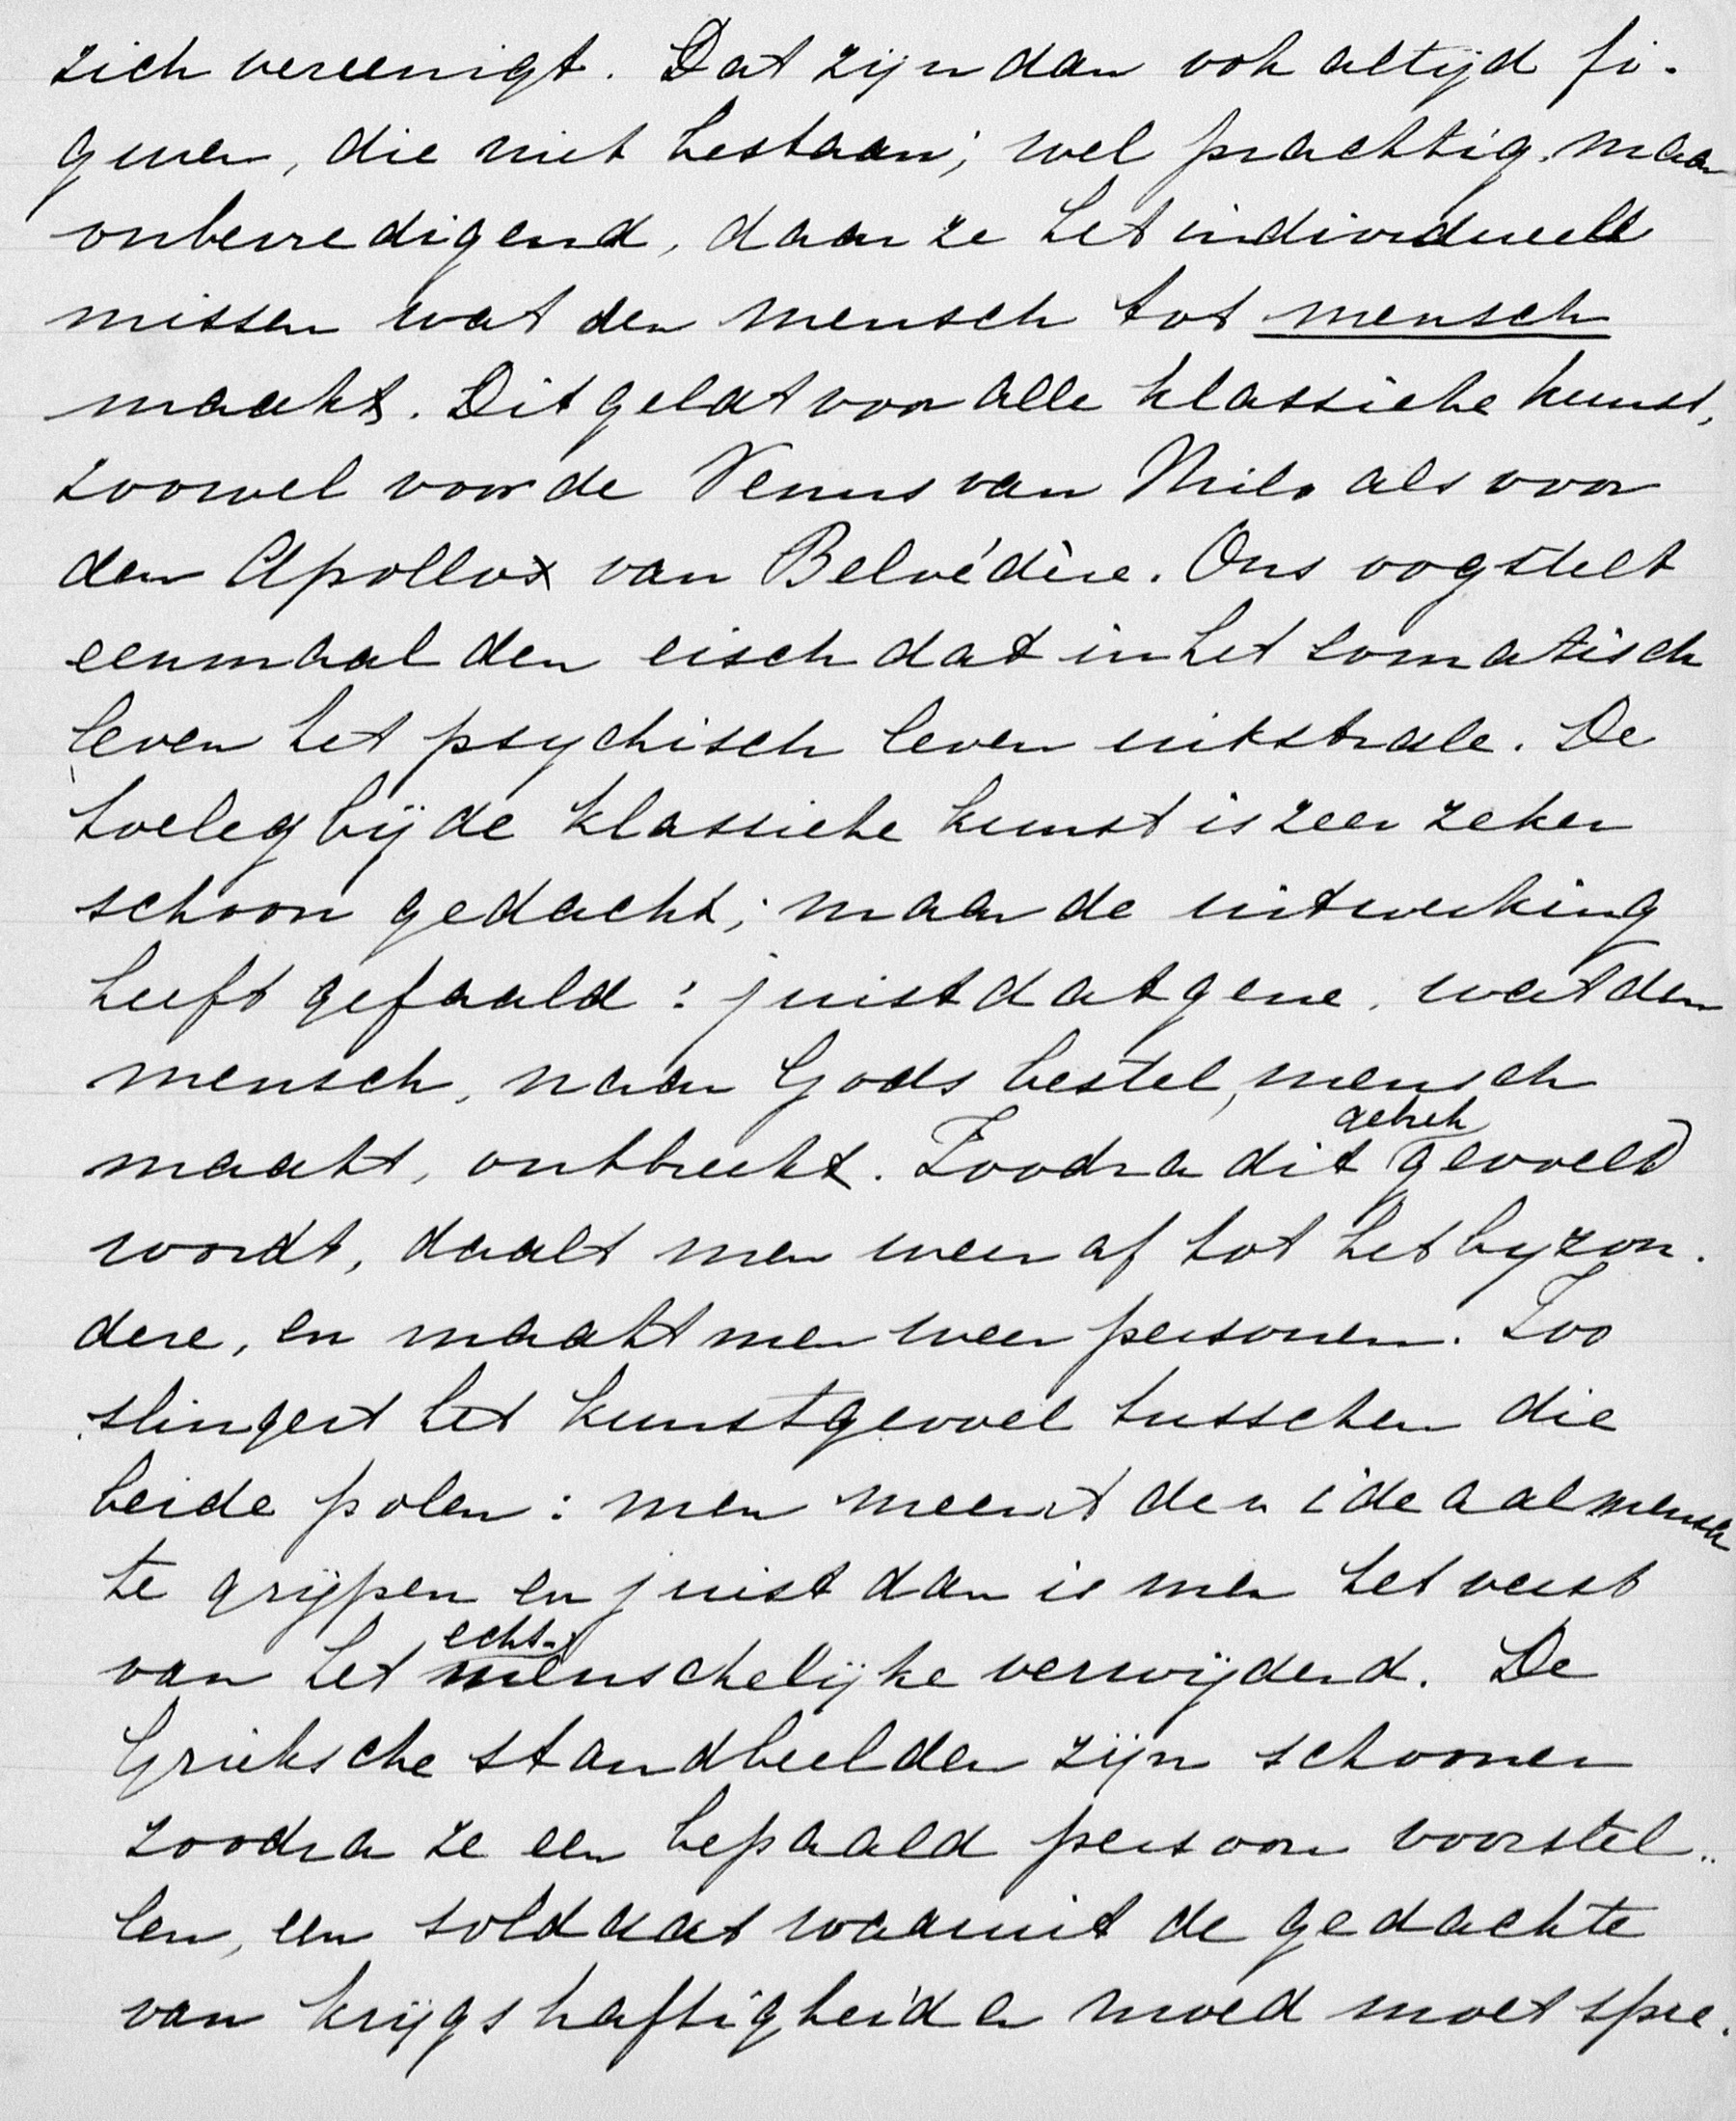 zich vereenigt. Dat zijn dan ook altijd fi-
guren, die niet bestaan; wel prachtig, maar
onbevredigend, daar ze het individueele
missen wat den mensch tot mensch
maakt. Dit geldt voor alle klassieke kunst,
zoowel voor de Venus van Milo als voor
den Apollo van Belvédère. Ons oog stelt
eenmaal den eisch dat in het somatisch
leven het psychisch leven uitstrale. De
toeleg bij de klassieke kunst is zeer zeker
schoon gedacht; maar de uitwerking
heeft gefaald: juist datgene, wat den
mensch, naar Gods bestel, mensch
maakt, ontbreekt. Zoodra dit gebrek gevoeld
wordt, daalt men weer af tot het byzon-
dere, en maakt men weer personen. Zoo
slingert het kunstgevoel tusschen die
beide polen: men meent den ideaalmensch
te grijpen en juist dan is men het verst
van het echt-menschelijke verwijderd. De
Grieksche standbeelden zijn schooner
zoodra ze een bepaald persoon voorstel-
len, een soldaat waaruit de gedachte
van krijgshaftigheid en moed moet spre-